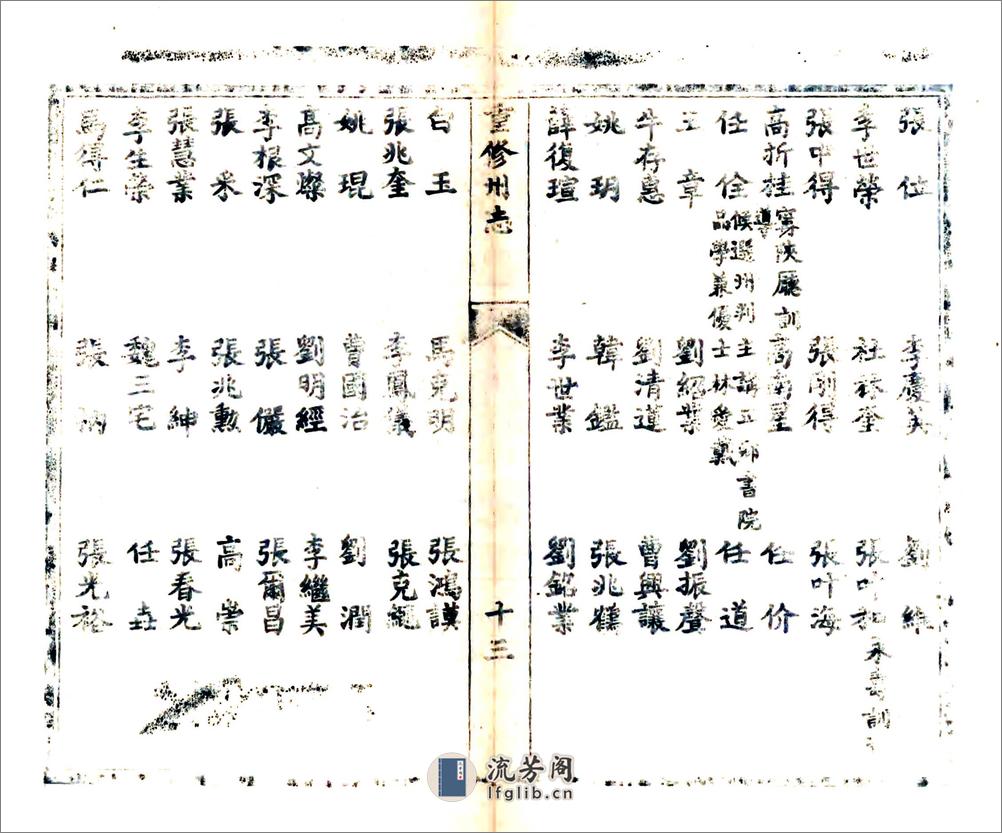 張位 李慶 劉維
李世榮 杜林奎 張叶和 永壽訓
張中得 張剛得 張叶海
高折桂 寧陝廳訓導 高南星 任价
任佺 候選州判主講五 書院 品學兼優士林愛戴 任道
王章 劉紹業 劉振聲
牛存惠 劉清道 曹興讓
姚玥 韓鑑 張兆鶴
薛復瑄 李世業 劉銘業
重修州志 十三
白玉 馬克明 張鴻謨
張兆奎 李鳳儀 張克繩
姚琨 曹國治 劉潤
高文燦 劉明經 李繼美
李根深 張儼 張爾昌
張釆 張兆勲 高崇
張慧業 李紳 張春光
李生榮 魏三宅 任垚
馬得仁 張 張光裕
流芳阁
lfglib.cn